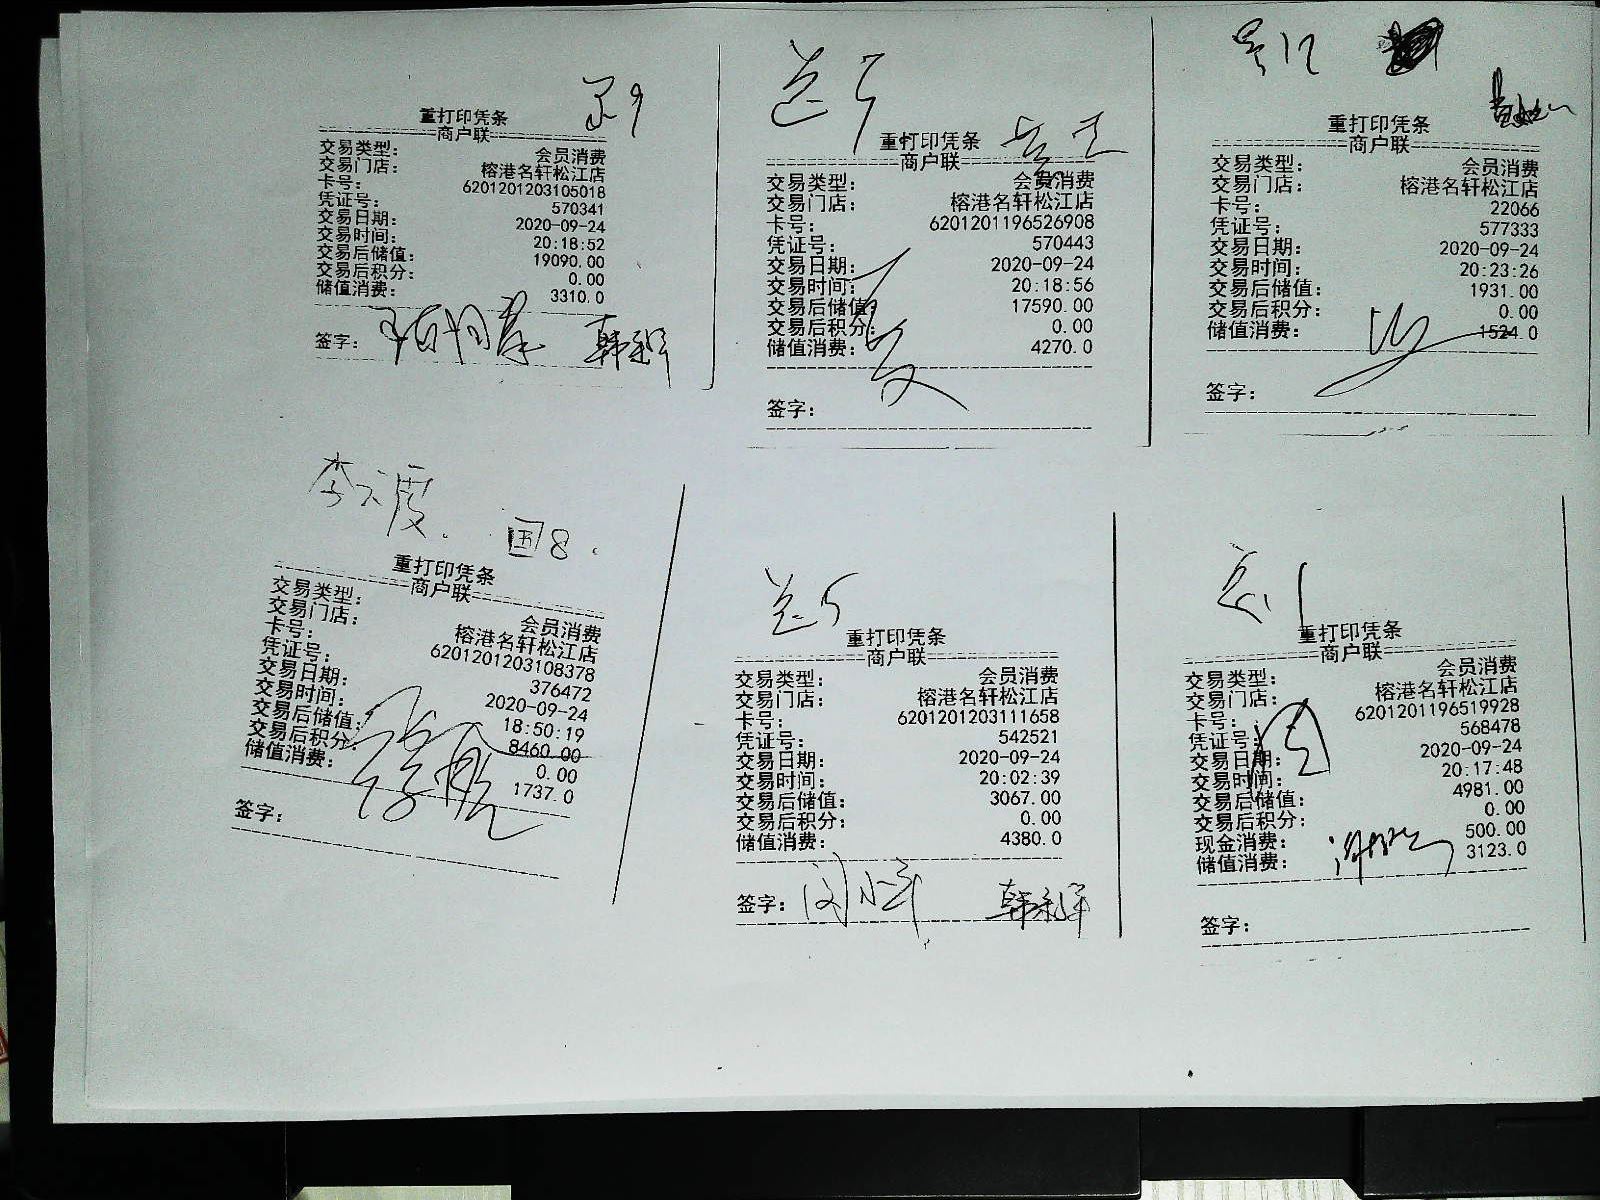 重打印凭条
商户联
交易类型： 会员消费
交易门店： 榕港名轩松江店
卡号： 6201201203105018
凭证号： 570341
交易日期： 2020-09-24
交易时间： 20:18:52
交易后储值： 19090.00
交易后积分： 0.00
储值消费： 3310.0
签字：
5
重打印凭条
商户联
交易类型： 会员消费
交易门店： 榕港名轩松江店
卡号： 6201201196526908
凭证号： 570443
交易日期： 2020-09-24
交易时间： 20:18:56
交易后储值： 17590.00
交易后积分： 0.00
储值消费： 4270.0
签字：
重打印凭条
商户联
交易类型： 会员消费
交易门店： 榕港名轩松江店
卡号： 22066
凭证号： 577333
交易日期： 2020-09-24
交易时间： 20:23:26
交易后储值： 1931.00
交易后积分： 0.00
储值消费： 1524.0
签字：
国8.
重打印凭条
商户联
交易类型： 会员消费
交易门店： 榕港名轩松江店
卡号： 6201201203108378
凭证号： 376472
交易日期： 2020-09-24
交易时间： 18:50:19
交易后储值： 8460.00
交易后积分： 0.00
储值消费： 1737.0
签字：
5
重打印凭条
商户联
交易类型： 会员消费
交易门店： 榕港名轩松江店
卡号： 6201201203111658
凭证号： 542521
交易日期： 2020-09-24
交易时间： 20:02:39
交易后储值： 3067.00
交易后积分： 0.00
储值消费： 4380.0
签字：
重打印凭条
商户联
交易类型： 会员消费
交易门店： 榕港名轩松江店
卡号： 6201201196519928
凭证号： 568478
交易日期： 2020-09-24
交易时间： 20:17:48
交易后储值： 4981.00
交易后积分： 0.00
现金消费： 500.00
储值消费： 3123.0
签字：